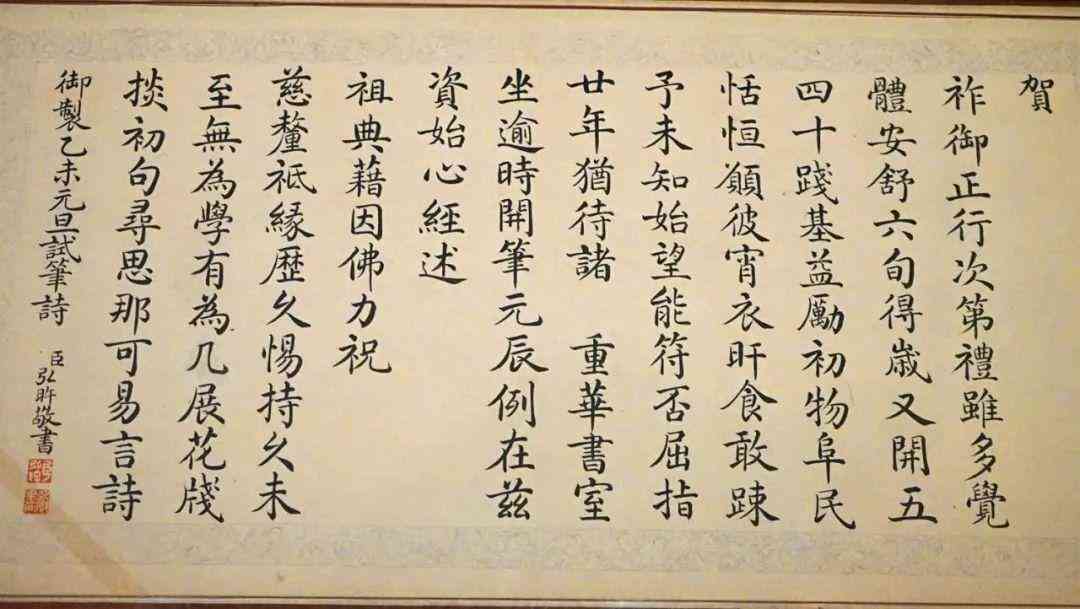 賀
祚御正行次第禮雖多覺
體安舒六旬得歲又開五
四十踐基益勵初物阜民
恬恒願彼宵衣旰食敢踈
予未知始望能符否屈指
廿年猶待諸 重華書室
坐逾時開筆元辰例在茲
資始心經述
祖典藉因佛力祝
慈釐祗緣歷久惕持久未
至無為學有為几展花牋
掞初句尋思那可易言詩
御製乙未元旦試筆詩 臣弘旿敬書